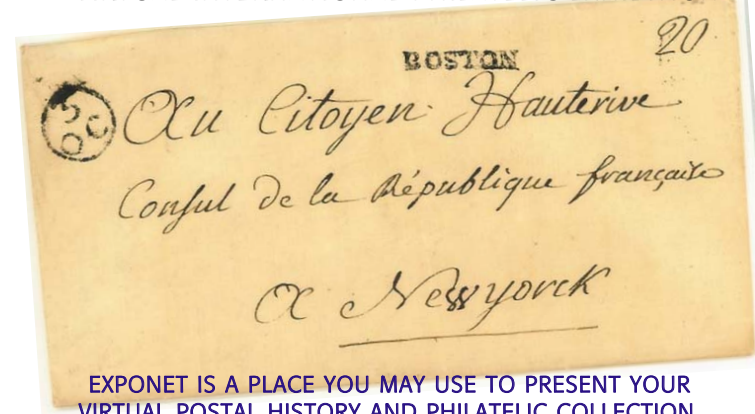 20
BOSTON
5
OC
Au Citoyen Hauterive
Consul de la République française
A Newyorck
EXPONET IS A PLACE YOU MAY USE TO PRESENT YOUR
VIRTUAL POSTAL HISTORY AND PHILATELIC COLLECTION